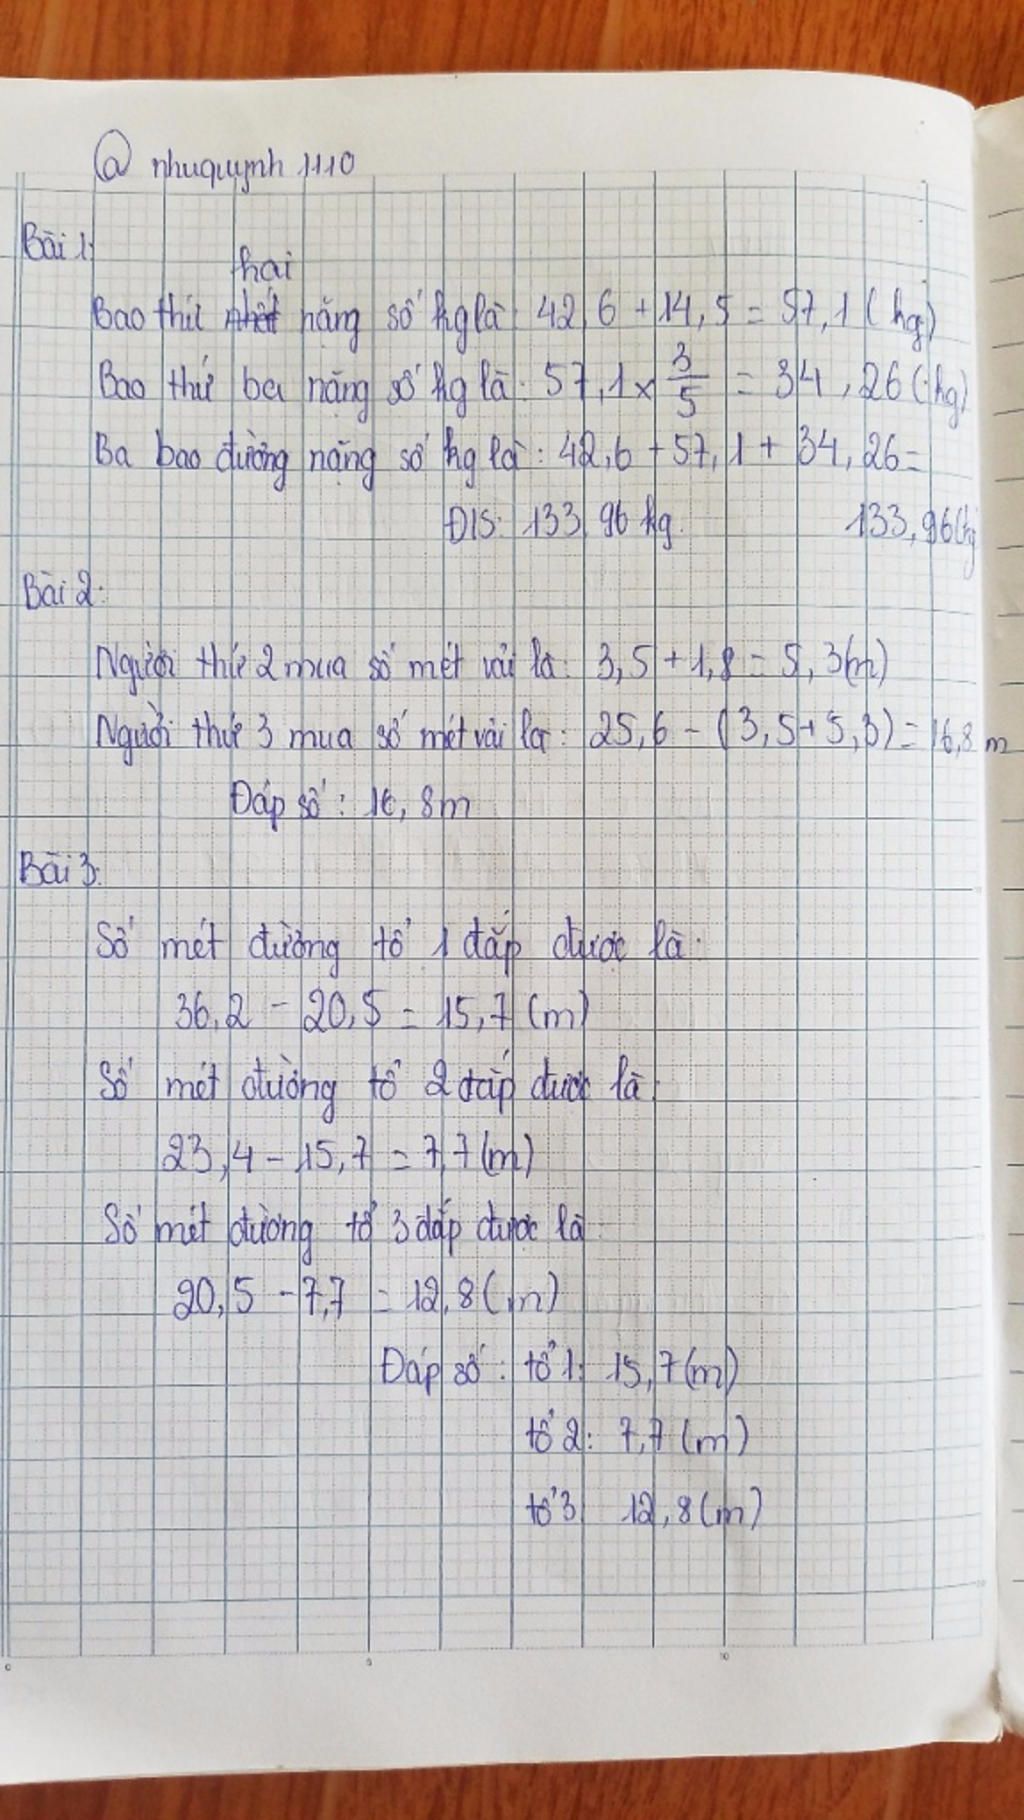 @ nhuquynh 1110
Bài 1:
hai
Bao thứ nhất nặng số kg là: 42,6 + 14,5 = 57,1 (kg)
Bao thứ ba nặng số kg là: 57,1 x 3/5 = 34,26 (kg)
Ba bao đường nặng số kg là: 42,6 + 57,1 + 34,26 =
Đ/S: 133,96 kg. 133,96 (kg
Bài 2:
Người thứ 2 mua số mét vải là: 3,5 + 1,8 = 5,3(m)
Người thứ 3 mua số mét vải là: 25,6 - (3,5 + 5,3) = 16,8 m
Đáp số: 16,8m
Bài 3:
Số mét đường tổ 1 đắp được là:
36,2 - 20,5 = 15,7 (m)
Số mét đường tổ 2 đắp được là:
23,4 - 15,7 = 7,7 (m)
Số mét đường tổ 3 đắp được là
20,5 - 7,7 = 12,8 (m)
Đáp số: tổ 1: 15,7 (m)
tổ 2: 7,7 (m)
tổ 3 12,8 (m)